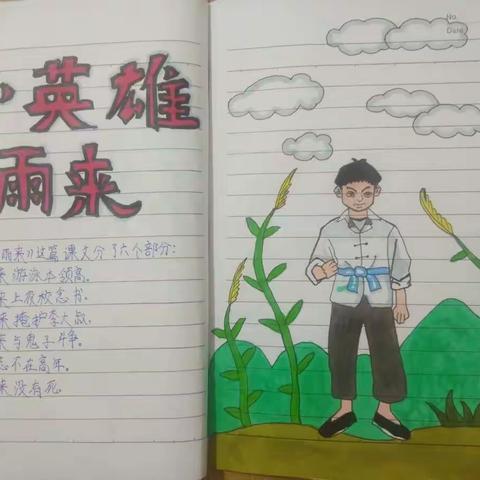 小英雄
雨来
雨来》这篇课文分了六个部分：
来游泳本领高。
来上夜校念书。
来掩护李大叔。
来与鬼子斗争。
志不在高年。
来没有死.
No.
Date